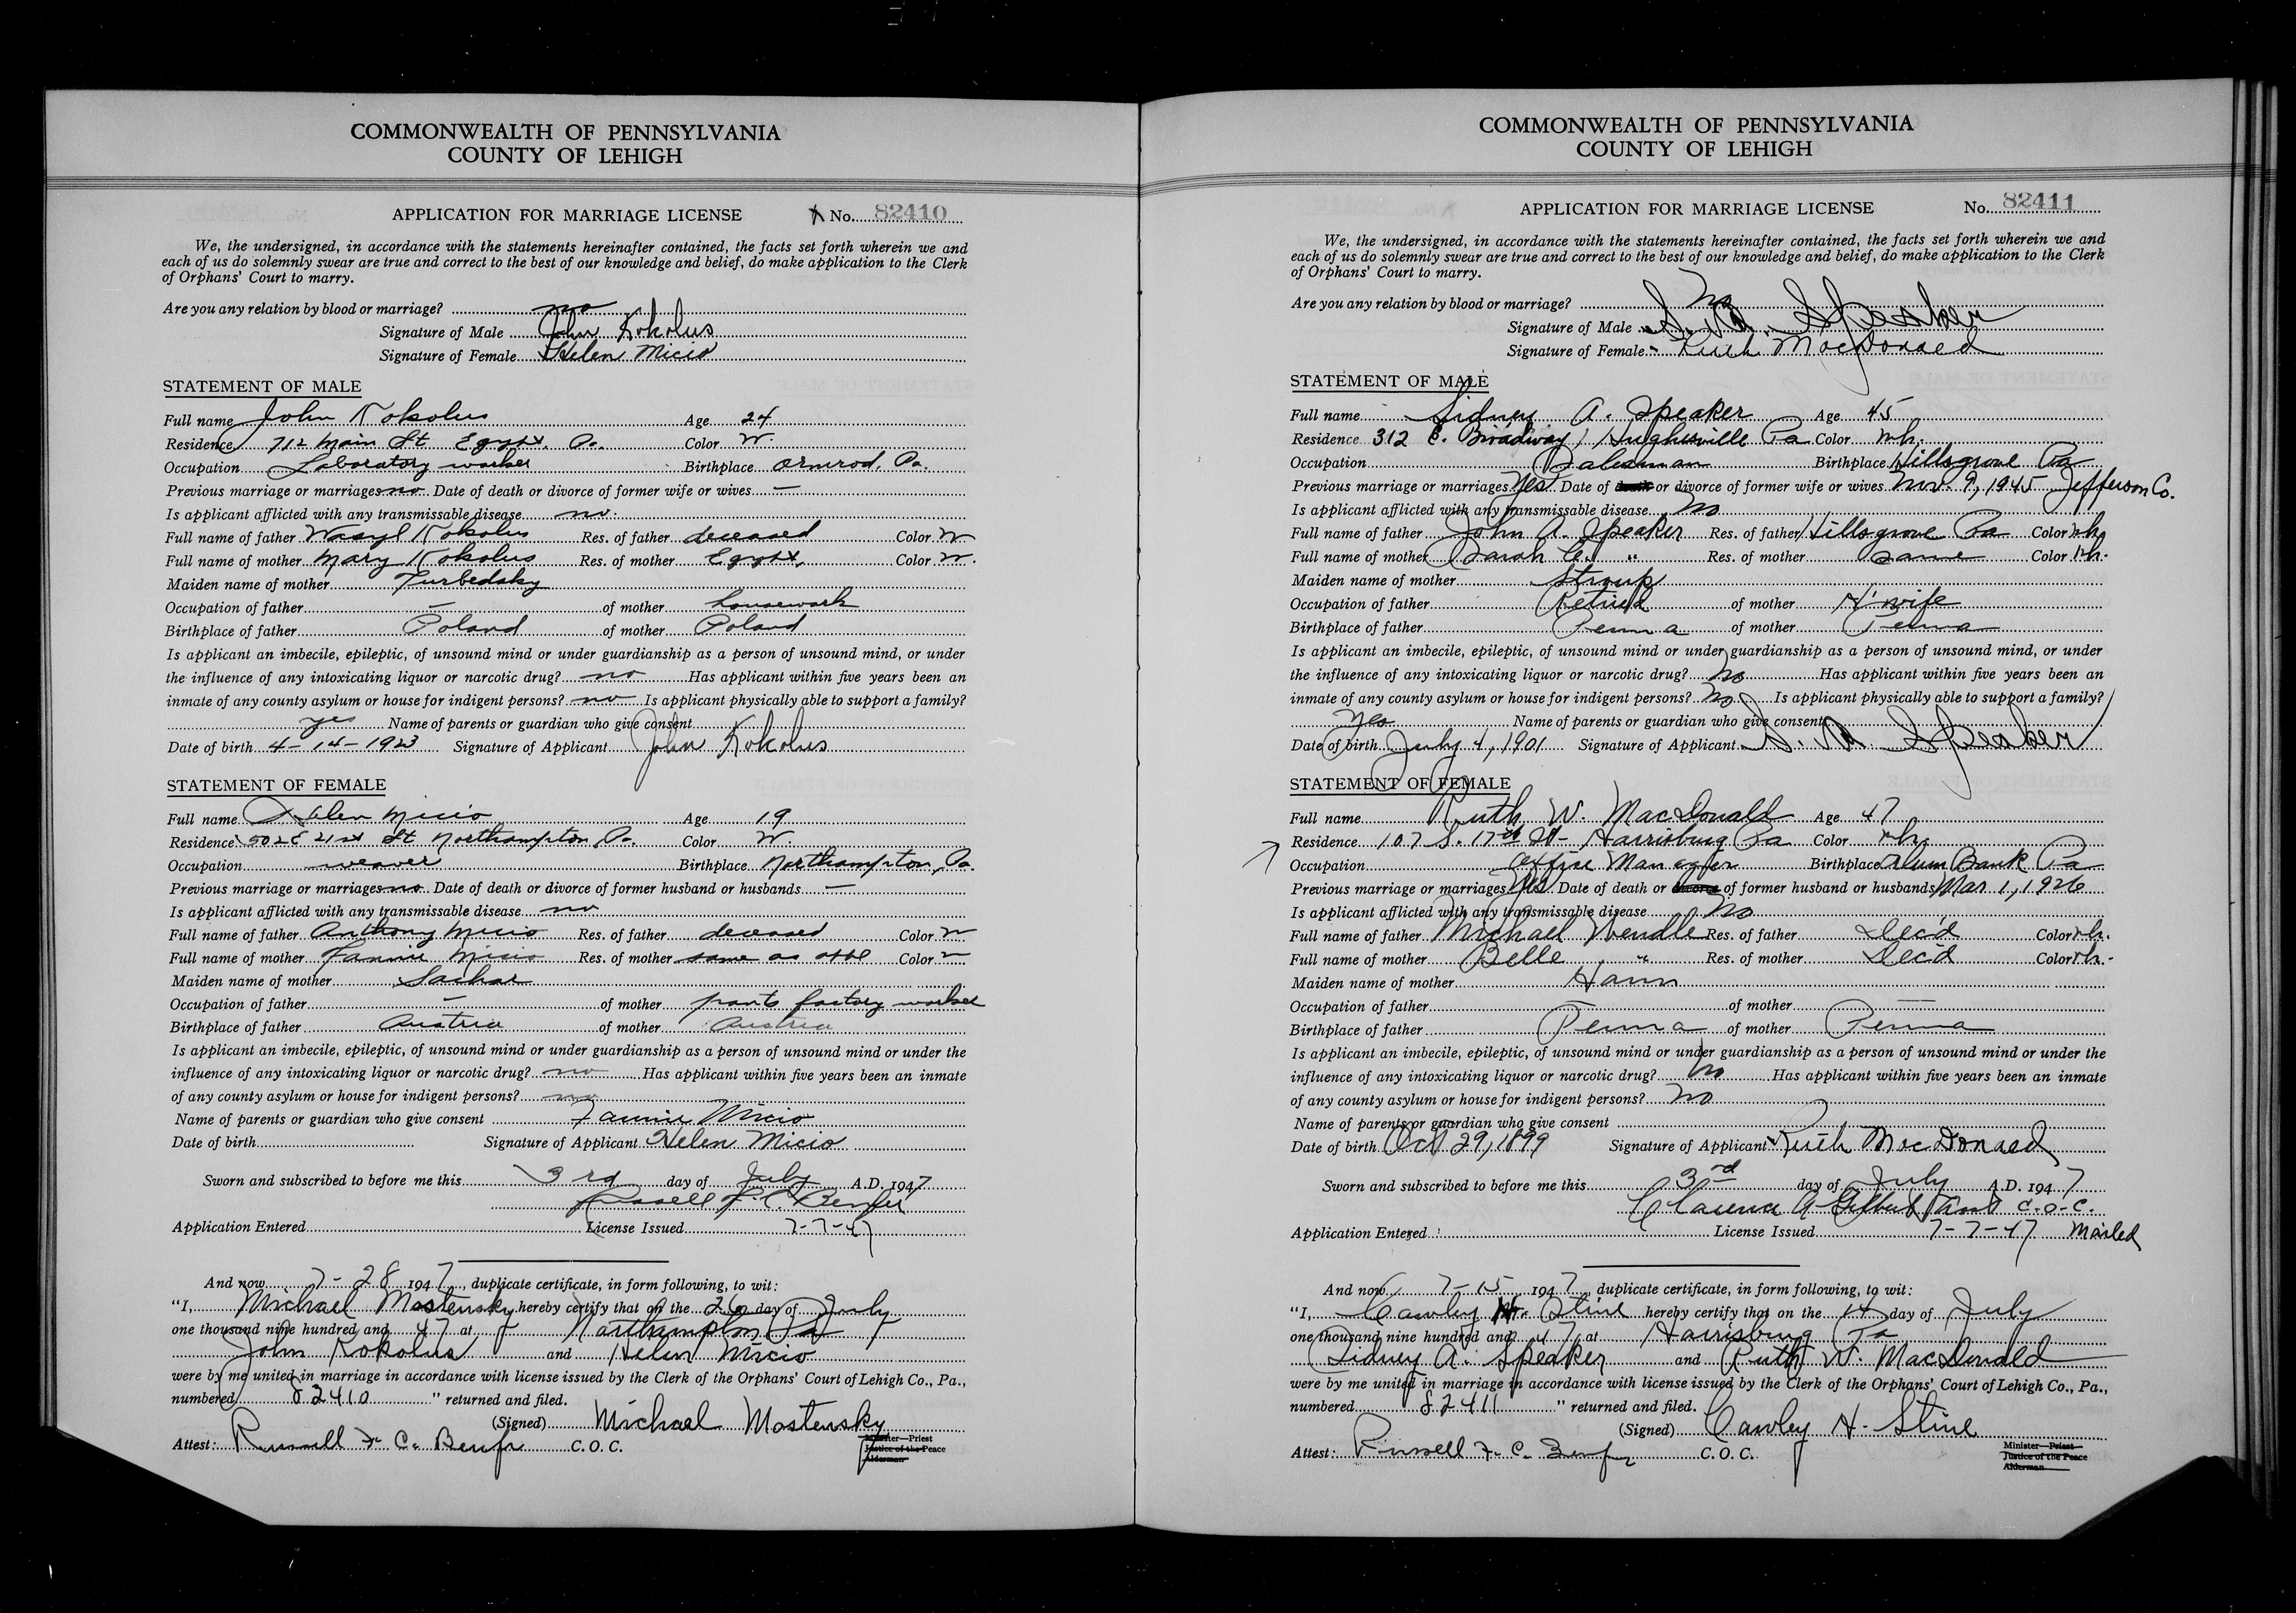 COMMONWEALTH OF PENNSYLVANIA
COUNTY OF LEHIGH
APPLICATION FOR MARRIAGE LICENSE No. 82410
We, the undersigned, in accordance with the statements hereinafter contained, the facts set forth wherein we and
each of us do solemnly swear are true and correct to the best of our knowledge and belief, do make application to the Clerk
of Orphans' Court to marry.
Are you any relation by blood or marriage? no
Signature of Male John Kokolus
Signature of Female Helen Micio
STATEMENT OF MALE
Full name John Kokolus Age 24
Residence 712 Main St Egypt, Pa. Color W.
Occupation Laboratory worker Birthplace Ormrod, Pa.
Previous marriage or marriages no Date of death or divorce of former wife or wives —
Is applicant afflicted with any transmissable disease no.
Full name of father Wasyl Kokolus Res. of father deceased Color W
Full name of mother Mary Kokolus Res. of mother Egypt, Color W.
Maiden name of mother Turbedsky
Occupation of father — of mother housework
Birthplace of father Poland of mother Poland
Is applicant an imbecile, epileptic, of unsound mind or under guardianship as a person of unsound mind, or under
the influence of any intoxicating liquor or narcotic drug? no Has applicant within five years been an
inmate of any county asylum or house for indigent persons? no Is applicant physically able to support a family?
yes Name of parents or guardian who give consent
Date of birth 4-14-1923 Signature of Applicant John Kokolus
STATEMENT OF FEMALE
Full name Helen Micio Age 19
Residence 21st St Northampton, Pa. Color W.
Occupation weaver Birthplace Northampton, Pa.
Previous marriage or marriages no Date of death or divorce of former husband or husbands —
Is applicant afflicted with any transmissable disease no
Full name of father Anthony Micio Res. of father deceased Color W
Full name of mother Fannie Micio Res. of mother same as appl Color W
Maiden name of mother Sachar
Occupation of father — of mother pants factory worker
Birthplace of father Austria of mother Austria
Is applicant an imbecile, epileptic, of unsound mind or under guardianship as a person of unsound mind or under the
influence of any intoxicating liquor or narcotic drug? no Has applicant within five years been an inmate
of any county asylum or house for indigent persons? no
Name of parents or guardian who give consent Fannie Micio
Date of birth Signature of Applicant Helen Micio
Sworn and subscribed to before me this 3rd day of July A.D. 1947
Russell F. C. Benfer
Application Entered License Issued 7-7-47
And now 7-28 1947, duplicate certificate, in form following, to wit:
"I, Michael Mostensky hereby certify that on the 26 day of July
one thousand nine hundred and 47 at Northampton Pa
John Kokolus and Helen Micio
were by me united in marriage in accordance with license issued by the Clerk of the Orphans' Court of Lehigh Co., Pa.,
numbered 82410 " returned and filed.
(Signed) Michael Mostensky
Attest: Russell F. C. Benfer C. O. C.
Minister—Priest
Justice of the Peace
Alderman
COMMONWEALTH OF PENNSYLVANIA
COUNTY OF LEHIGH
APPLICATION FOR MARRIAGE LICENSE No. 82411
We, the undersigned, in accordance with the statements hereinafter contained, the facts set forth wherein we and
each of us do solemnly swear are true and correct to the best of our knowledge and belief, do make application to the Clerk
of Orphans' Court to marry.
Are you any relation by blood or marriage? No
Signature of Male S. A. Speaker
Signature of Female Ruth MacDonald
STATEMENT OF MALE
Full name Sidney A. Speaker Age 45
Residence 312 E. Broadway, Hughesville Pa Color wh.
Occupation Salesman Birthplace Hillsgrove Pa
Previous marriage or marriages Yes Date of death or divorce of former wife or wives Nov. 9, 1945 Jefferson Co.
Is applicant afflicted with any transmissable disease No
Full name of father John A. Speaker Res. of father Hillsgrove Pa Color wh
Full name of mother Sarah C. " Res. of mother Same Color wh.
Maiden name of mother Stroup
Occupation of father Retired of mother H'wife
Birthplace of father Penna of mother Penna
Is applicant an imbecile, epileptic, of unsound mind or under guardianship as a person of unsound mind, or under
the influence of any intoxicating liquor or narcotic drug? No Has applicant within five years been an
inmate of any county asylum or house for indigent persons? No Is applicant physically able to support a family?
Yes Name of parents or guardian who give consent
Date of birth July 4, 1901 Signature of Applicant S. A. Speaker
STATEMENT OF FEMALE
Full name Ruth W. MacDonald Age 47
Residence 107 S. 17th St- Harrisburg Pa Color wh
Occupation Office Manager Birthplace Alum Bank Pa
Previous marriage or marriages Yes Date of death or divorce of former husband or husbands Mar. 1, 1926
Is applicant afflicted with any transmissable disease No
Full name of father Michael Wendle Res. of father Dec'd Color wh.
Full name of mother Belle " Res. of mother Dec'd Color wh.
Maiden name of mother Hann
Occupation of father of mother —
Birthplace of father Penna of mother Penna
Is applicant an imbecile, epileptic, of unsound mind or under guardianship as a person of unsound mind or under the
influence of any intoxicating liquor or narcotic drug? No Has applicant within five years been an inmate
of any county asylum or house for indigent persons? No
Name of parents or guardian who give consent
Date of birth Oct 29, 1899 Signature of Applicant Ruth MacDonald
Sworn and subscribed to before me this 3rd day of July A.D. 1947
Clarence A Gilbert Asst C.O.C.
Application Entered License Issued 7-7-47 Mailed
And now 7-15 1947, duplicate certificate, in form following, to wit:
"I, Cawley H. Stine hereby certify that on the 14 day of July
one thousand nine hundred and 47 at Harrisburg Pa
Sidney A. Speaker and Ruth W. MacDonald
were by me united in marriage in accordance with license issued by the Clerk of the Orphans' Court of Lehigh Co., Pa.,
numbered 82411 " returned and filed.
(Signed) Cawley H. Stine
Attest: Russell F. C. Benfer C. O. C.
Minister—Priest
Justice of the Peace
Alderman